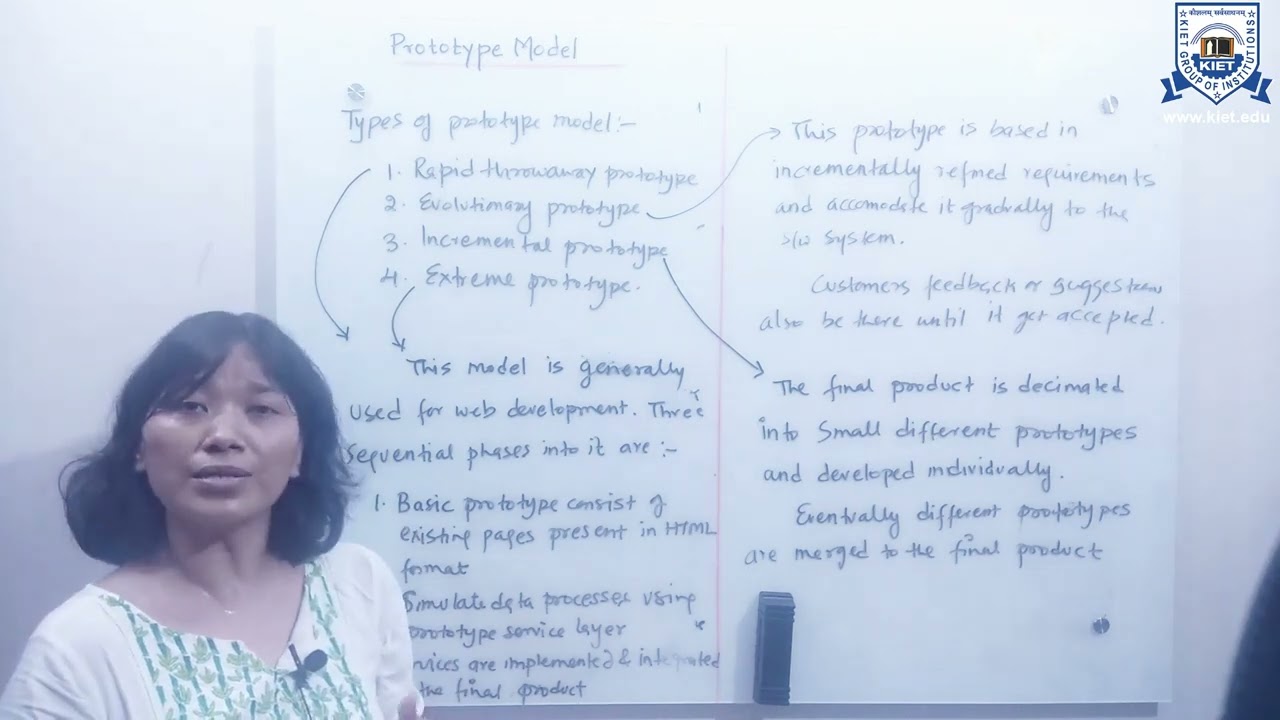 Prototype Model
Types of prototype model:-
1. Rapid throwaway prototype
2. Evolutionary prototype
3. Incremental prototype
4. Extreme prototype.
This model is generally
used for web development. Three
sequential phases into it are :-
1. Basic prototype consist of
existing pages present in HTML
format
Simulate data processes using
prototype service layer
are implemented & integrated
the final product
This prototype is based in
incrementally refined requirements
and accomodate it gradually to the
s/w system.
Customers feedback or suggestions
also be there until it get accepted.
The final product is decimated
into small different prototypes
and developed individually.
Eventually different prototypes
are merged to the final product
कौशलम् सर्वसाधनम्
KIET GROUP OF INSTITUTIONS
KIET
www.kiet.edu